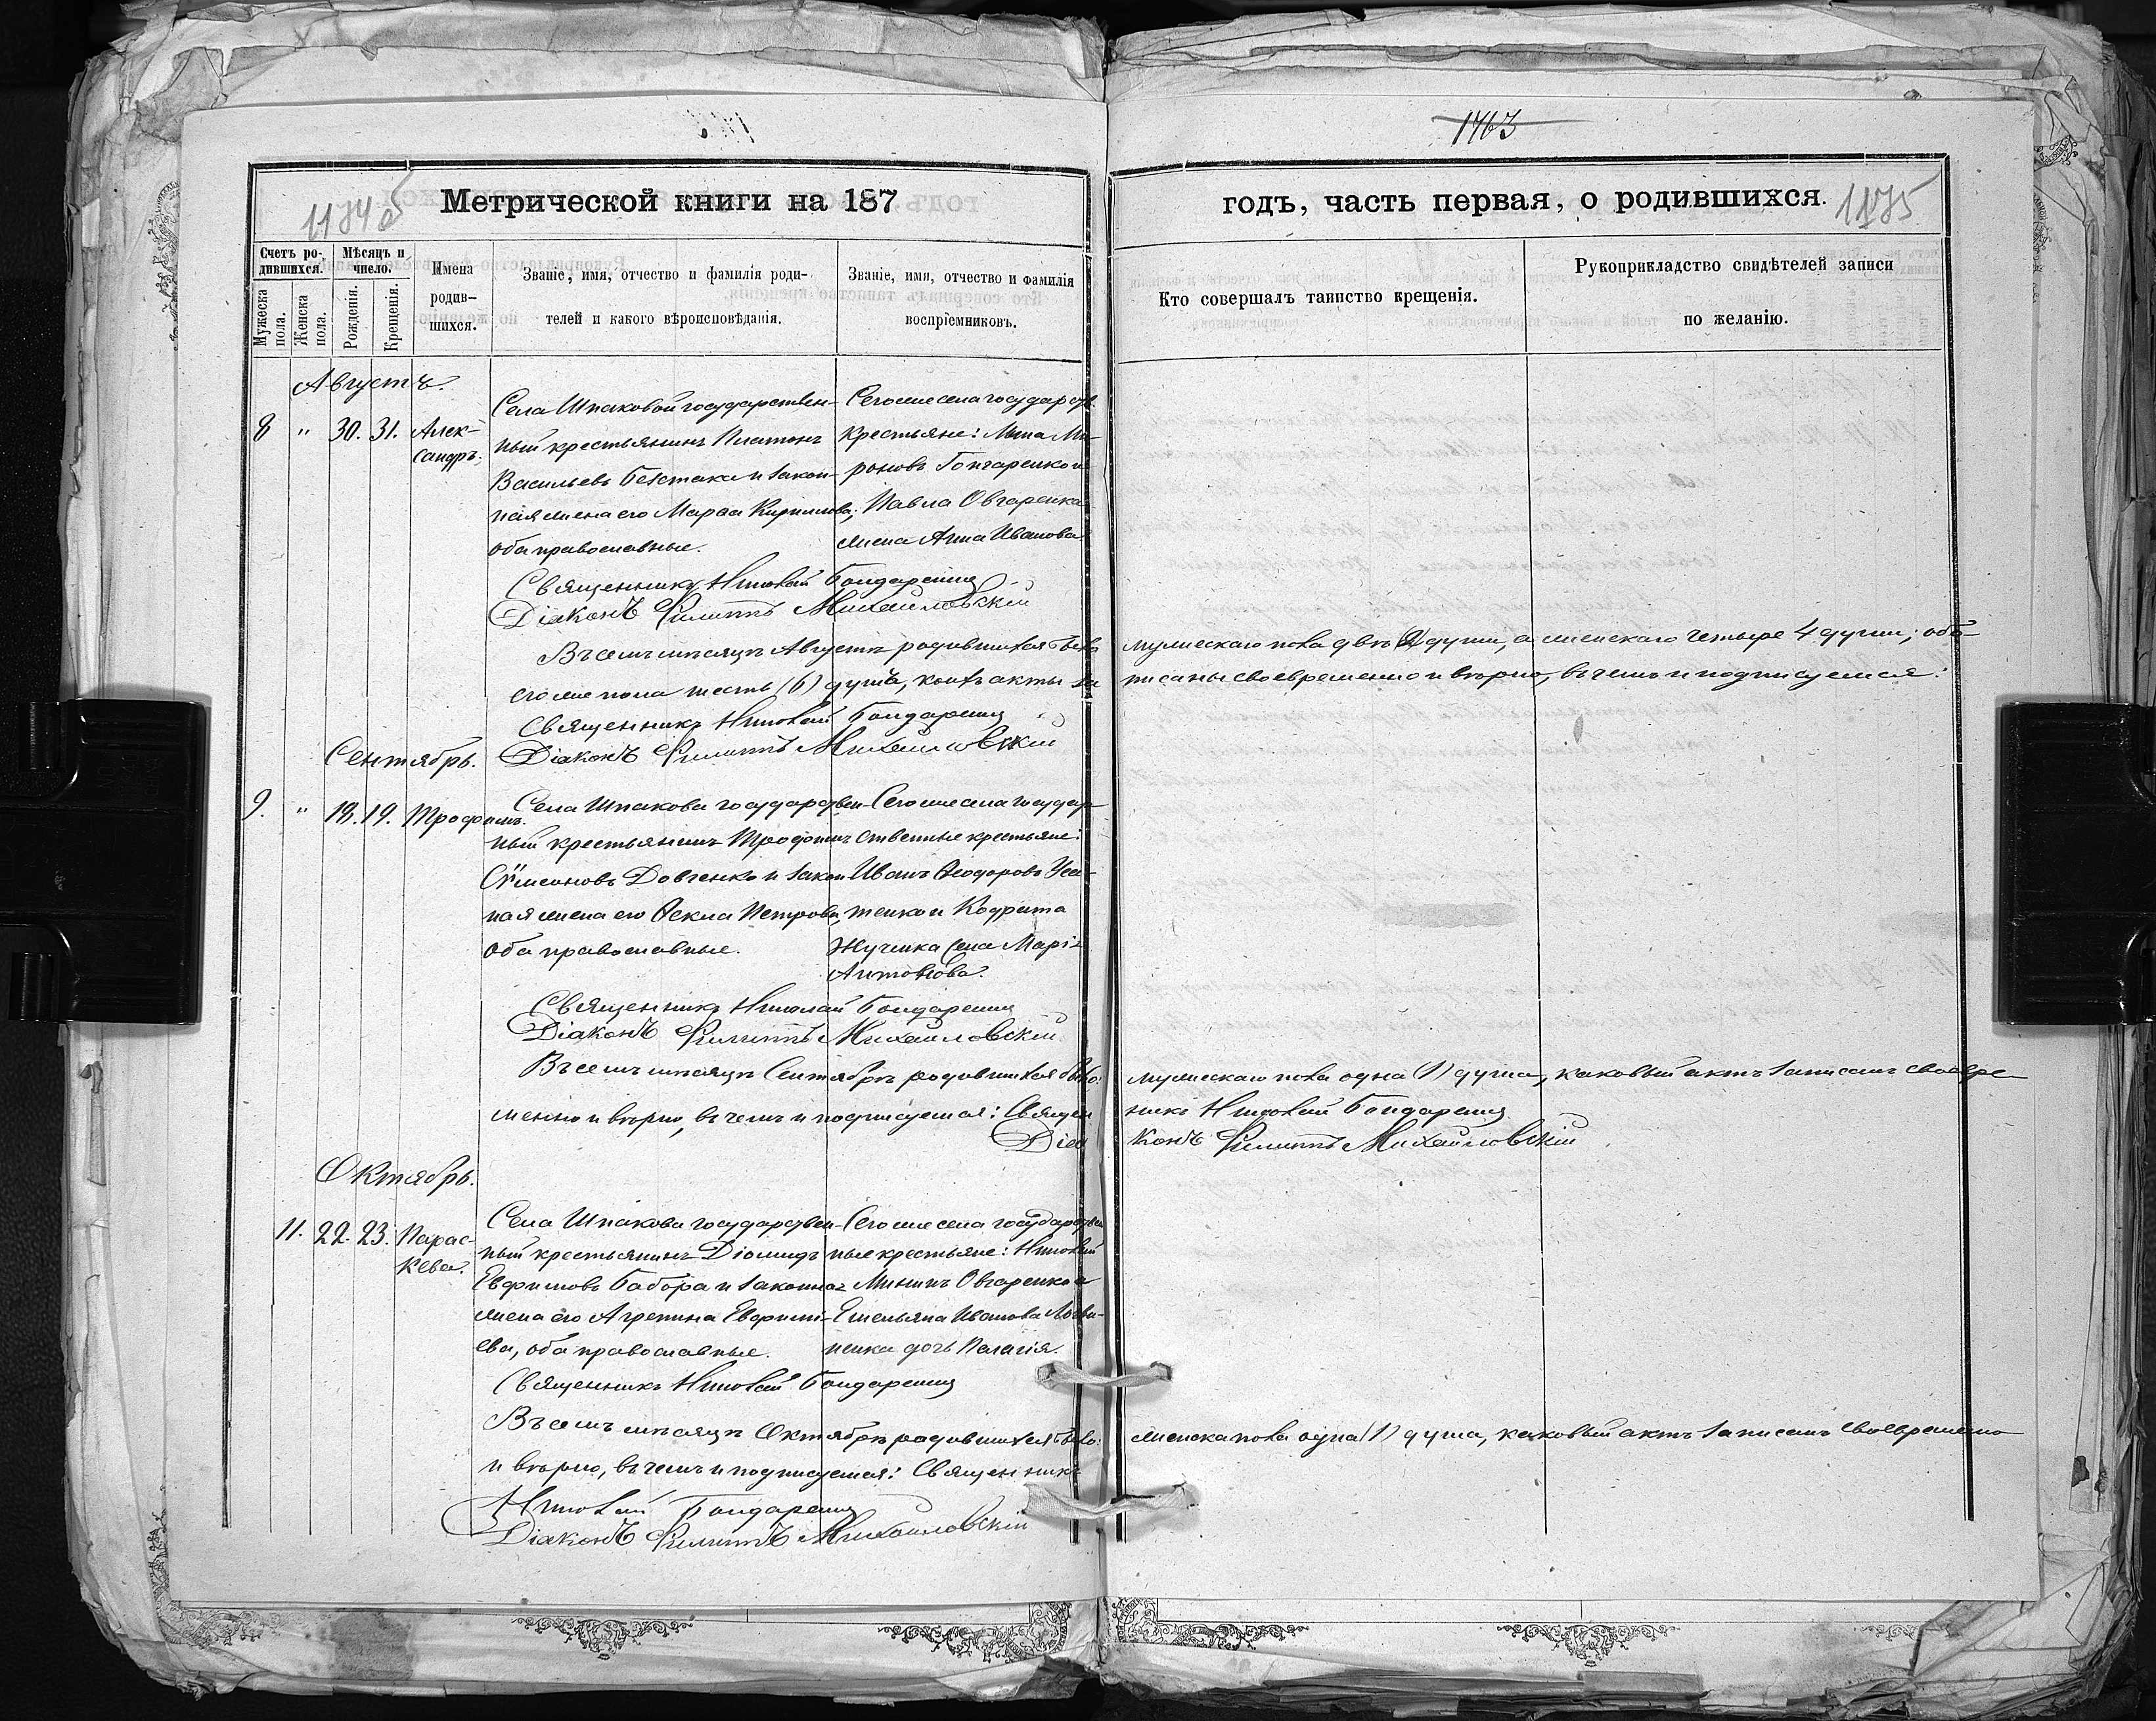 1463
1174 об
Метрической книги на 187
годъ, часть первая, о родившихся.
1175
Счетъ родившихся.
Мужеска пола.
Женска пола.
Мѣсяцъ и число.
Рожденія.
Крещенія.
Имена
родив-
шихся.
Званіе, имя, отчество и фамилія роди-
телей и какого вѣроисповѣданія.
Званіе, имя, отчество и фамилія
воспріемниковъ.
Кто совершалъ таинство крещенія.
Рукоприкладство свидѣтелей записи
по желанію.
Августъ.
8 " 30. 31. Алек-
сандръ.
Села Шпаковой государствен-
ный крестьянинъ Платонъ
Васильевъ и закон-
ная жена его Марѳа Кириллова;
оба православные.
Того же села государств.
крестьяне:
роновъ Гончаренко и
Павла Овчаренка
жена Анна Иванова.
Священникъ Николай Бондаренко
Діаконъ Филиппъ Михайловскій
Въ семъ мѣсяцѣ Августѣ родившихся было
мужескаго пола двѣ (2) души, а женскаго четыре 4 души; обо-
его же пола шесть (6) душъ, коихъ акты за
писаны своевременно и вѣрно, въ чемъ и подписуемся:
Священникъ Николай Бондаренко
Діаконъ Филиппъ Михайловскій
Сентябрь.
9. " 18. 19. Трофимъ.
Села Шпакова государствен-
ный крестьянинъ Трофимъ
Сѵмеоновъ Довженко и закон
ная жена его Ѳекла Петрова,
оба православные.
Того же села государ-
ственные крестьяне:
Иванъ Ѳеодоровъ Уса-
тенко и Кодрата
Жученка жена Марія
Антонова.
Священникъ Николай Бондаренко
Діаконъ Филиппъ Михайловскій
Въ семъ мѣсяцѣ Сентябрѣ родившихся было:
мужескаго пола одна (1) душа, каковый актъ записанъ своевре-
менно и вѣрно, въ чемъ и подписуемся: Священ
никъ Николай Бондаренко
Діа
конъ Филиппъ Михайловскій
Октябрь.
11. 22. 23. Парас-
кева.
Села Шпакова государствен-
ный крестьянинъ Діомидъ
Евфимовъ Бабора и законная
жена его Агрепина Евфимі-
ева, оба православные.
Того же села государствен
ные крестьяне: Николай
Мининъ Овчаренко и
Емельяна Иванова Логви-
ненка дочь Пелагія.
Священникъ Николай Бондаренко
Въ семъ мѣсяцѣ Октябрѣ родившихся было:
женска пола одна (1) душа, каковый актъ записанъ своевременно
и вѣрно, въ чемъ и подписуемся: Священникъ
Николай Бондаренко
Діаконъ Филиппъ Михайловскій